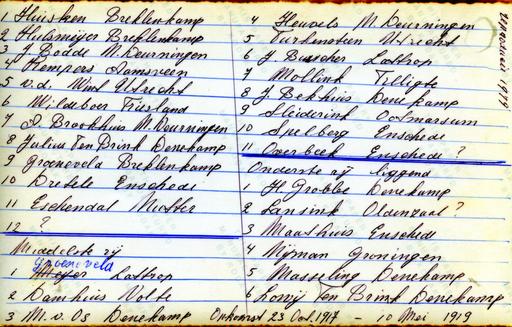 1 Huisken Breklenkamp
2 Hulsmeijer Breklenkamp
3 J Bodde M. Deurningen
4 Kempers Lamsveen
5 v.d. Wart Utrecht
6 Wildeboer Friesland
7 A. Broekhuis M. Deurningen
8 Julius Ten Brink Denekamp
9 Groeneveld Breklenkamp
10 Dretels Enschede
11 Eschendal Munster
12 ?
Middelste rij
Groeneveld
1 Lattrop
2 Damhuis Volte
3 M. v. Os Denekamp
4 Heuvels M. Deurningen
5 Turkenstein Utrecht
6 J Busscher Lattrop
7 Mollink Tilligte
8 J Bekhuis Denekamp
9 Sleiderink Ootmarsum
10 Spelberg Enschede
11 Overbeek Enschede ?
Onderste rij liggend
1 H Grobbe Denekamp
2 Lansink Oldenzaal ?
3 Maathuis Enschede
4 Nijman Groningen
5 Masseling Denekamp
6 Louij Ten Brink Denekamp
Opkomst 23 Oct. 1917 - 10 Mei 1919